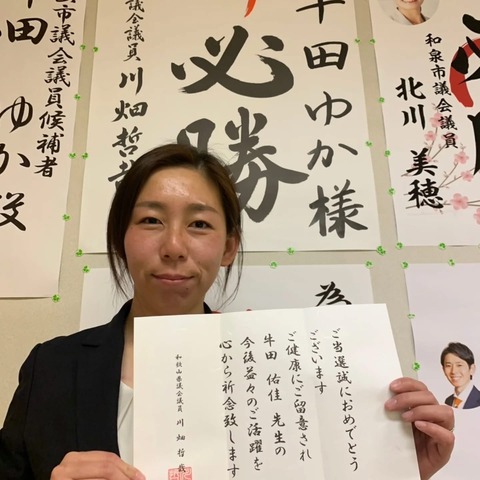 為
必勝
牛田ゆか様
議会議員 川畑哲哉
山市議会議員候補者
牛田ゆか殿
和泉市議会議員
北川美穂
ご当選誠におめでとう
ございます
ご健康にご留意され
牛田 佑佳 先生の
今後益々のご活躍を
心から祈念致します
和歌山県議会議員 川畑 哲哉